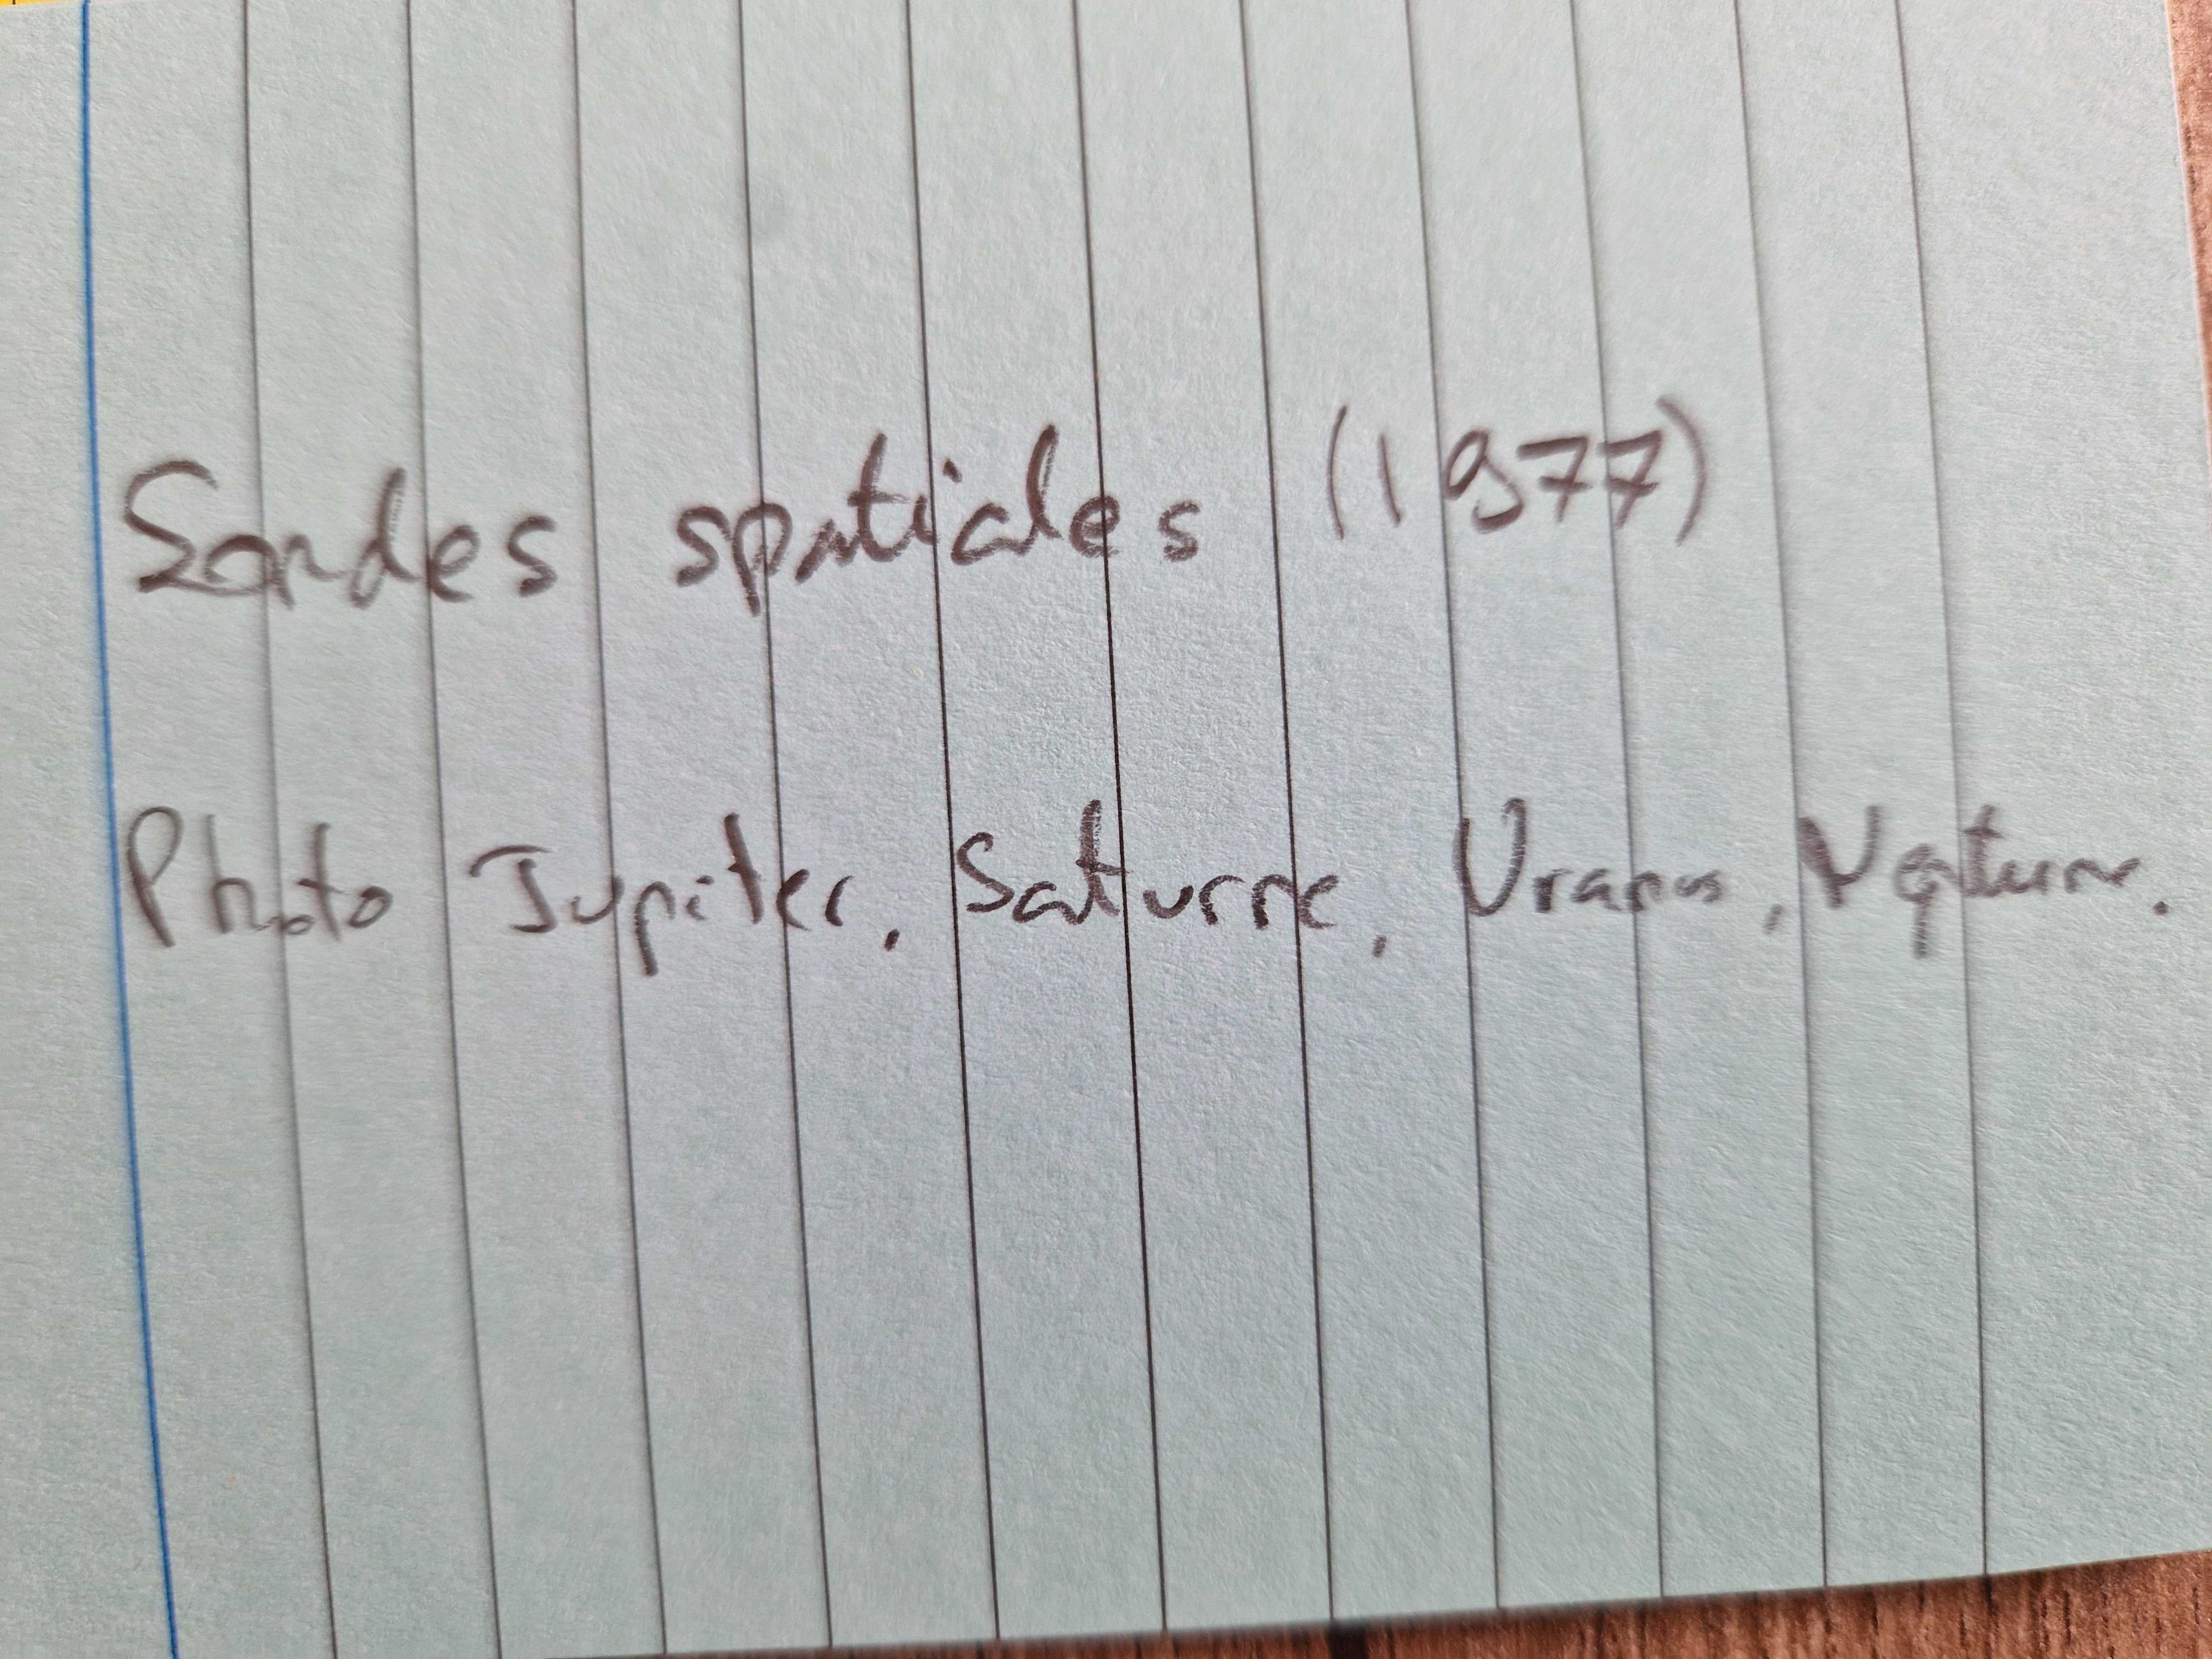 Sondes spatiales (1977)
Photo Jupiter, Saturne, Uranus, Neptune.